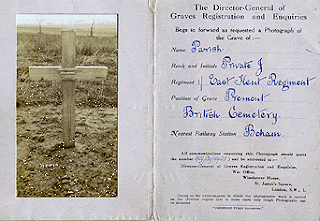 The Director-General of
Graves Registration and Enquiries
Begs to forward as requested a Photograph of
the Grave of :—
Name Parish
Rank and Initials Private J
Regiment 1/ East Kent Regiment
Position of Grave Premont
British Cemetery.
Nearest Railway Station Bohain.
All communications respecting this Photograph should quote
the number and be addressed to :—
Director-General of Graves Registration and Enquiries,
War Office,
Winchester House,
St. James's Square,
London, S.W. 1.